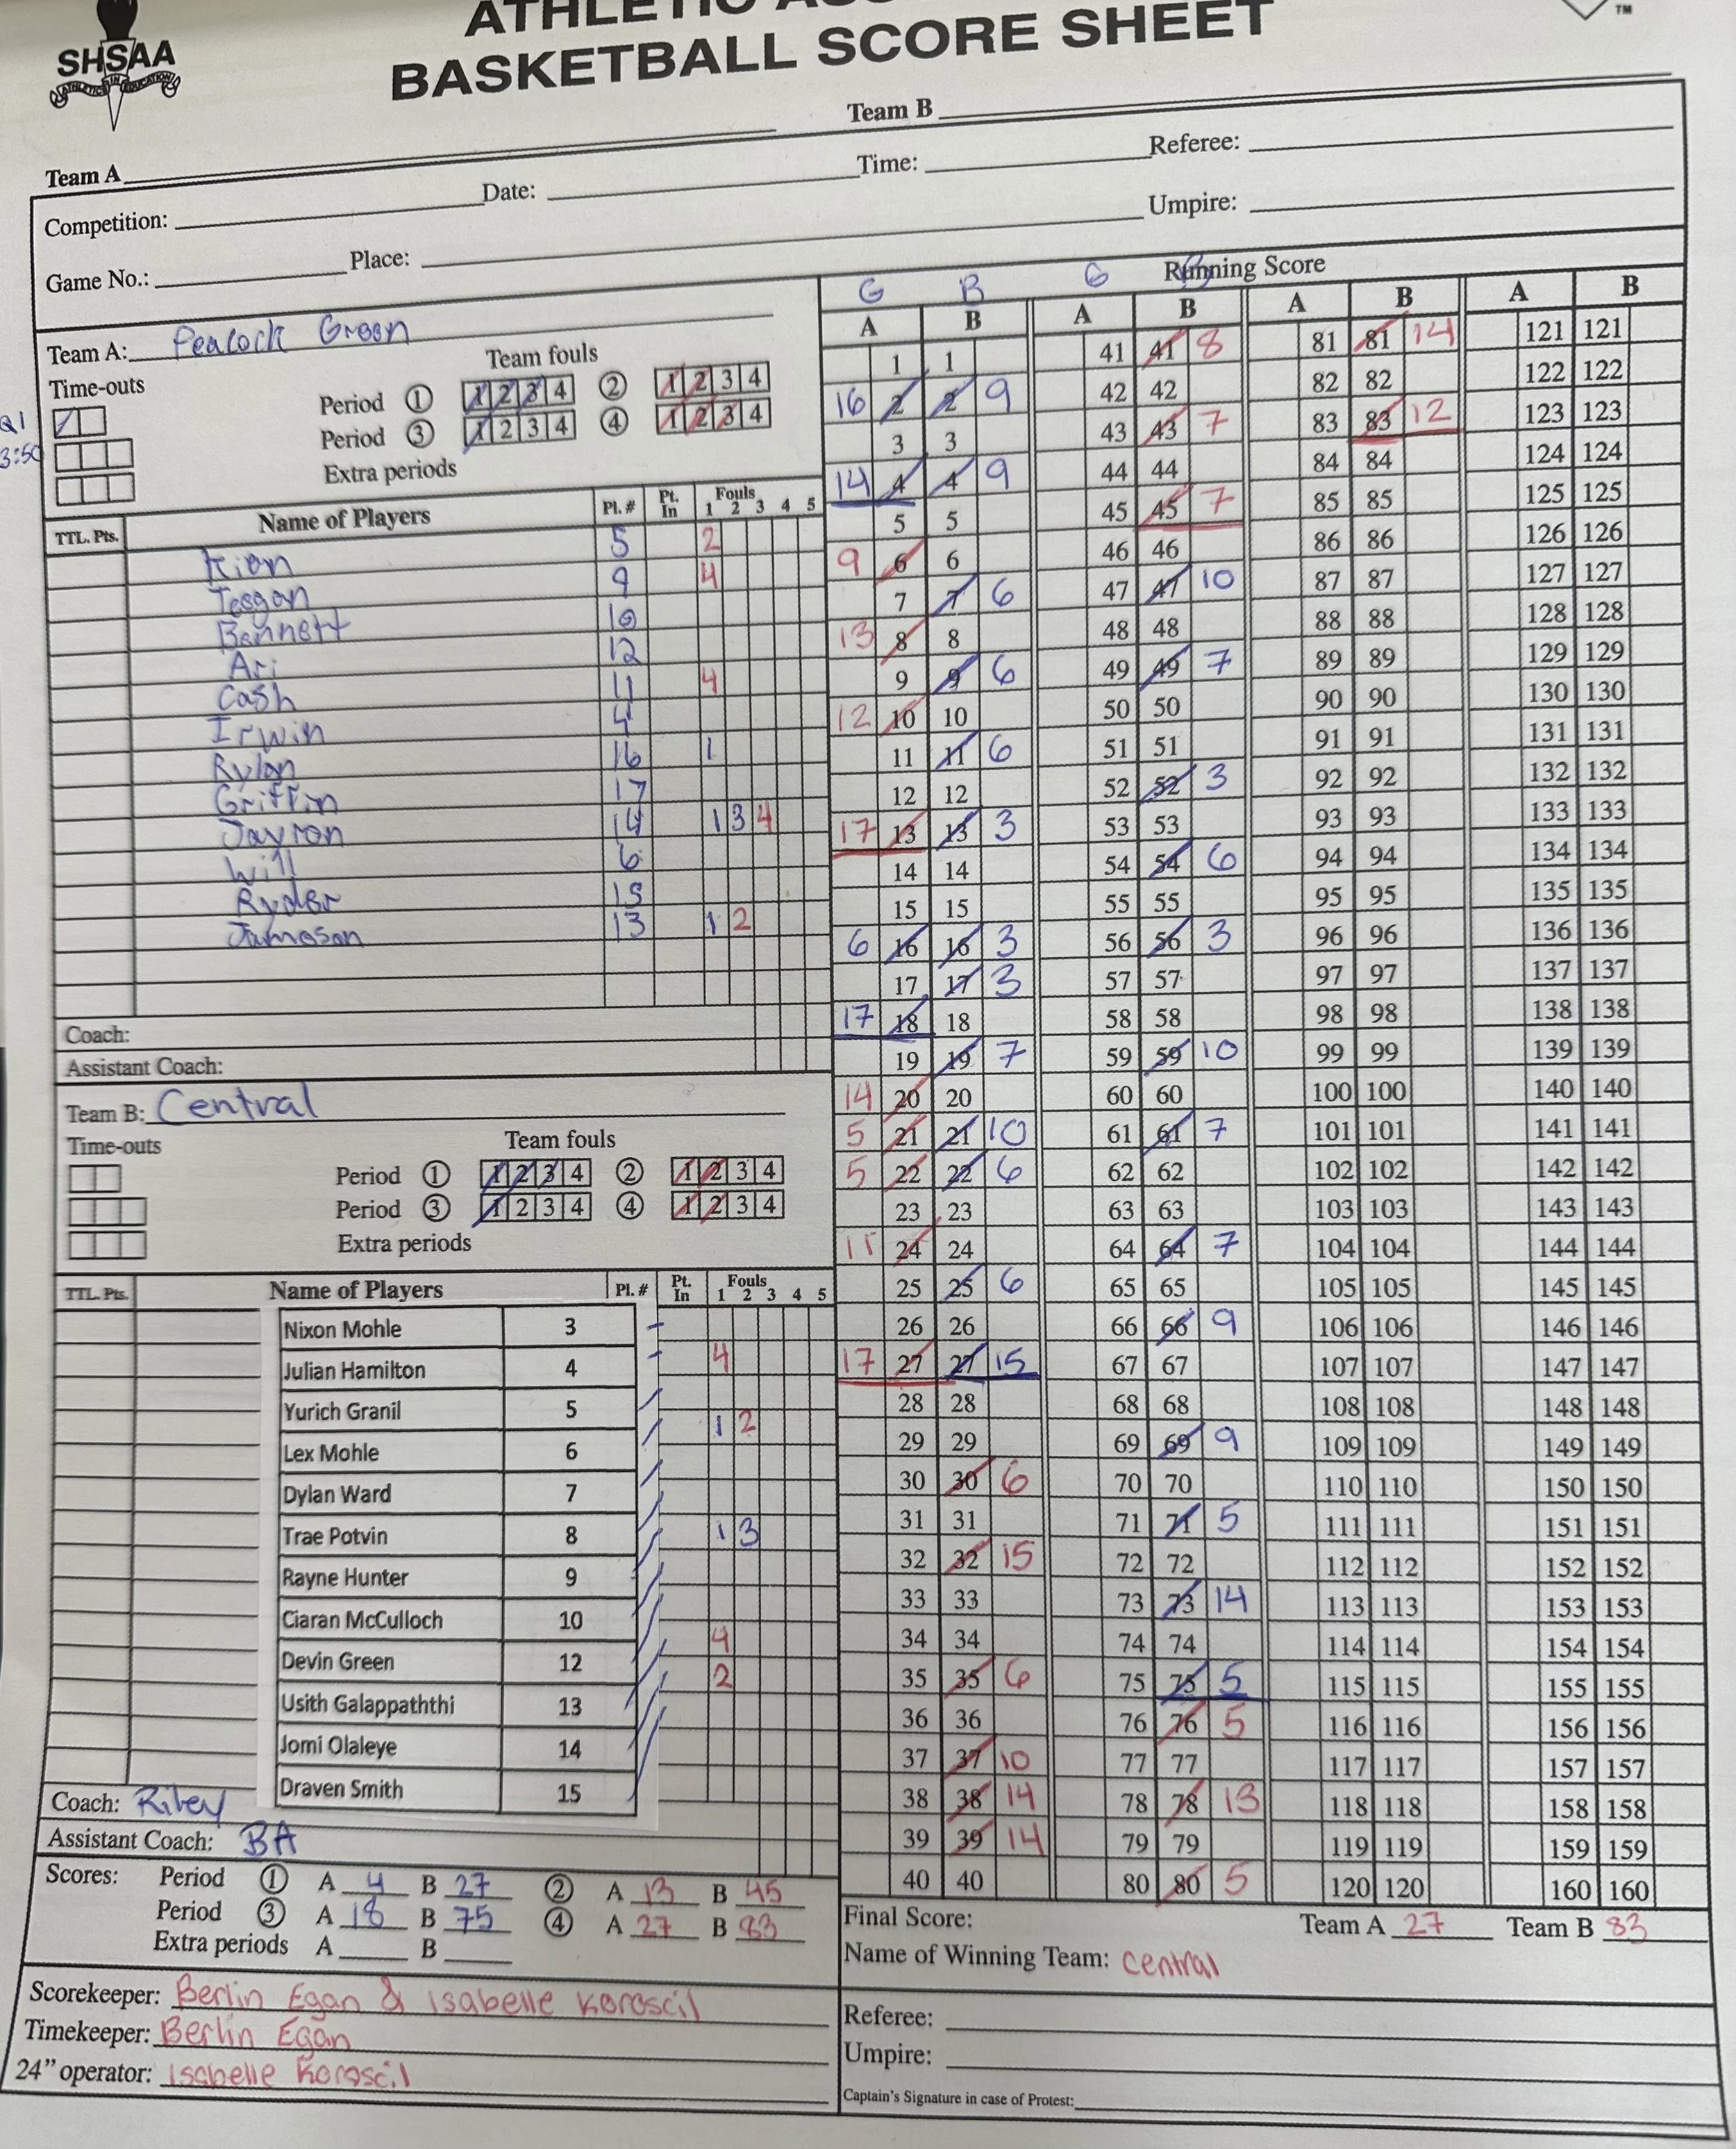 SHSAA
ATHLETICS IN EDUCATION
BASKETBALL SCORE SHEET
TM
Team A Team B
Competition: Date: Time: Referee:
Game No.: Place: Umpire:
Team A: Peacock Green
Time-outs Team fouls
Q1
3:50
Period 1 1 2 3 4 2 1 2 3 4
Period 3 1 2 3 4 4 1 2 3 4
Extra periods
TTL. Pts. Name of Players Pl. # Pt. In Fouls 1 2 3 4 5
Kian 5 2
Teegan 9 4
Bennett 10
Ari 12
Cash 11 4
Irwin 4
Rylan 16 1
Griffin 17
Jayron 14 1 3 4
Will 6
Ryder 15
Jameson 13 1 2
Coach:
Assistant Coach:
Team B: Central
Time-outs Team fouls
Period 1 1 2 3 4 2 1 2 3 4
Period 3 1 2 3 4 4 1 2 3 4
Extra periods
TTL. Pts. Name of Players Pl. # Pt. In Fouls 1 2 3 4 5
Nixon Mohle 3
Julian Hamilton 4 4
Yurich Granil 5
Lex Mohle 6 1 2
Dylan Ward 7
Trae Potvin 8 1 3
Rayne Hunter 9
Ciaran McCulloch 10
Devin Green 12 4
Usith Galappaththi 13 2
Jomi Olaleye 14
Draven Smith 15
Coach: Riley
Assistant Coach: BA
Scores: Period 1 A 4 B 27 2 A 13 B 45
Period 3 A 18 B 75 4 A 27 B 83
Extra periods A B
Scorekeeper: Berlin Egan & Isabelle Koroscil
Timekeeper: Berlin Egan
24" operator: Isabelle Koroscil
Running Score
G B G
A B A B A B A B
1 1 41 41 8 81 81 14 121 121
16 2 2 9 42 42 82 82 122 122
3 3 43 43 7 83 83 12 123 123
14 4 4 9 44 44 84 84 124 124
5 5 45 45 7 85 85 125 125
9 6 6 46 46 86 86 126 126
7 7 6 47 47 10 87 87 127 127
13 8 8 48 48 88 88 128 128
9 9 6 49 49 7 89 89 129 129
12 10 10 50 50 90 90 130 130
11 11 6 51 51 91 91 131 131
12 12 52 52 3 92 92 132 132
17 13 13 3 53 53 93 93 133 133
14 14 54 54 6 94 94 134 134
15 15 55 55 95 95 135 135
6 16 16 3 56 56 3 96 96 136 136
17 17 3 57 57 97 97 137 137
17 18 18 58 58 98 98 138 138
19 19 7 59 59 10 99 99 139 139
14 20 20 60 60 100 100 140 140
5 21 21 10 61 61 7 101 101 141 141
5 22 22 6 62 62 102 102 142 142
23 23 63 63 103 103 143 143
11 24 24 64 64 7 104 104 144 144
25 25 6 65 65 105 105 145 145
26 26 66 66 9 106 106 146 146
17 27 27 15 67 67 107 107 147 147
28 28 68 68 108 108 148 148
29 29 69 69 9 109 109 149 149
30 30 6 70 70 110 110 150 150
31 31 71 71 5 111 111 151 151
32 32 15 72 72 112 112 152 152
33 33 73 73 14 113 113 153 153
34 34 74 74 114 114 154 154
35 35 6 75 75 5 115 115 155 155
36 36 76 76 5 116 116 156 156
37 37 10 77 77 117 117 157 157
38 38 14 78 78 13 118 118 158 158
39 39 14 79 79 119 119 159 159
40 40 80 80 5 120 120 160 160
Final Score: Team A 27 Team B 83
Name of Winning Team: Central
Referee:
Umpire:
Captain's Signature in case of Protest: